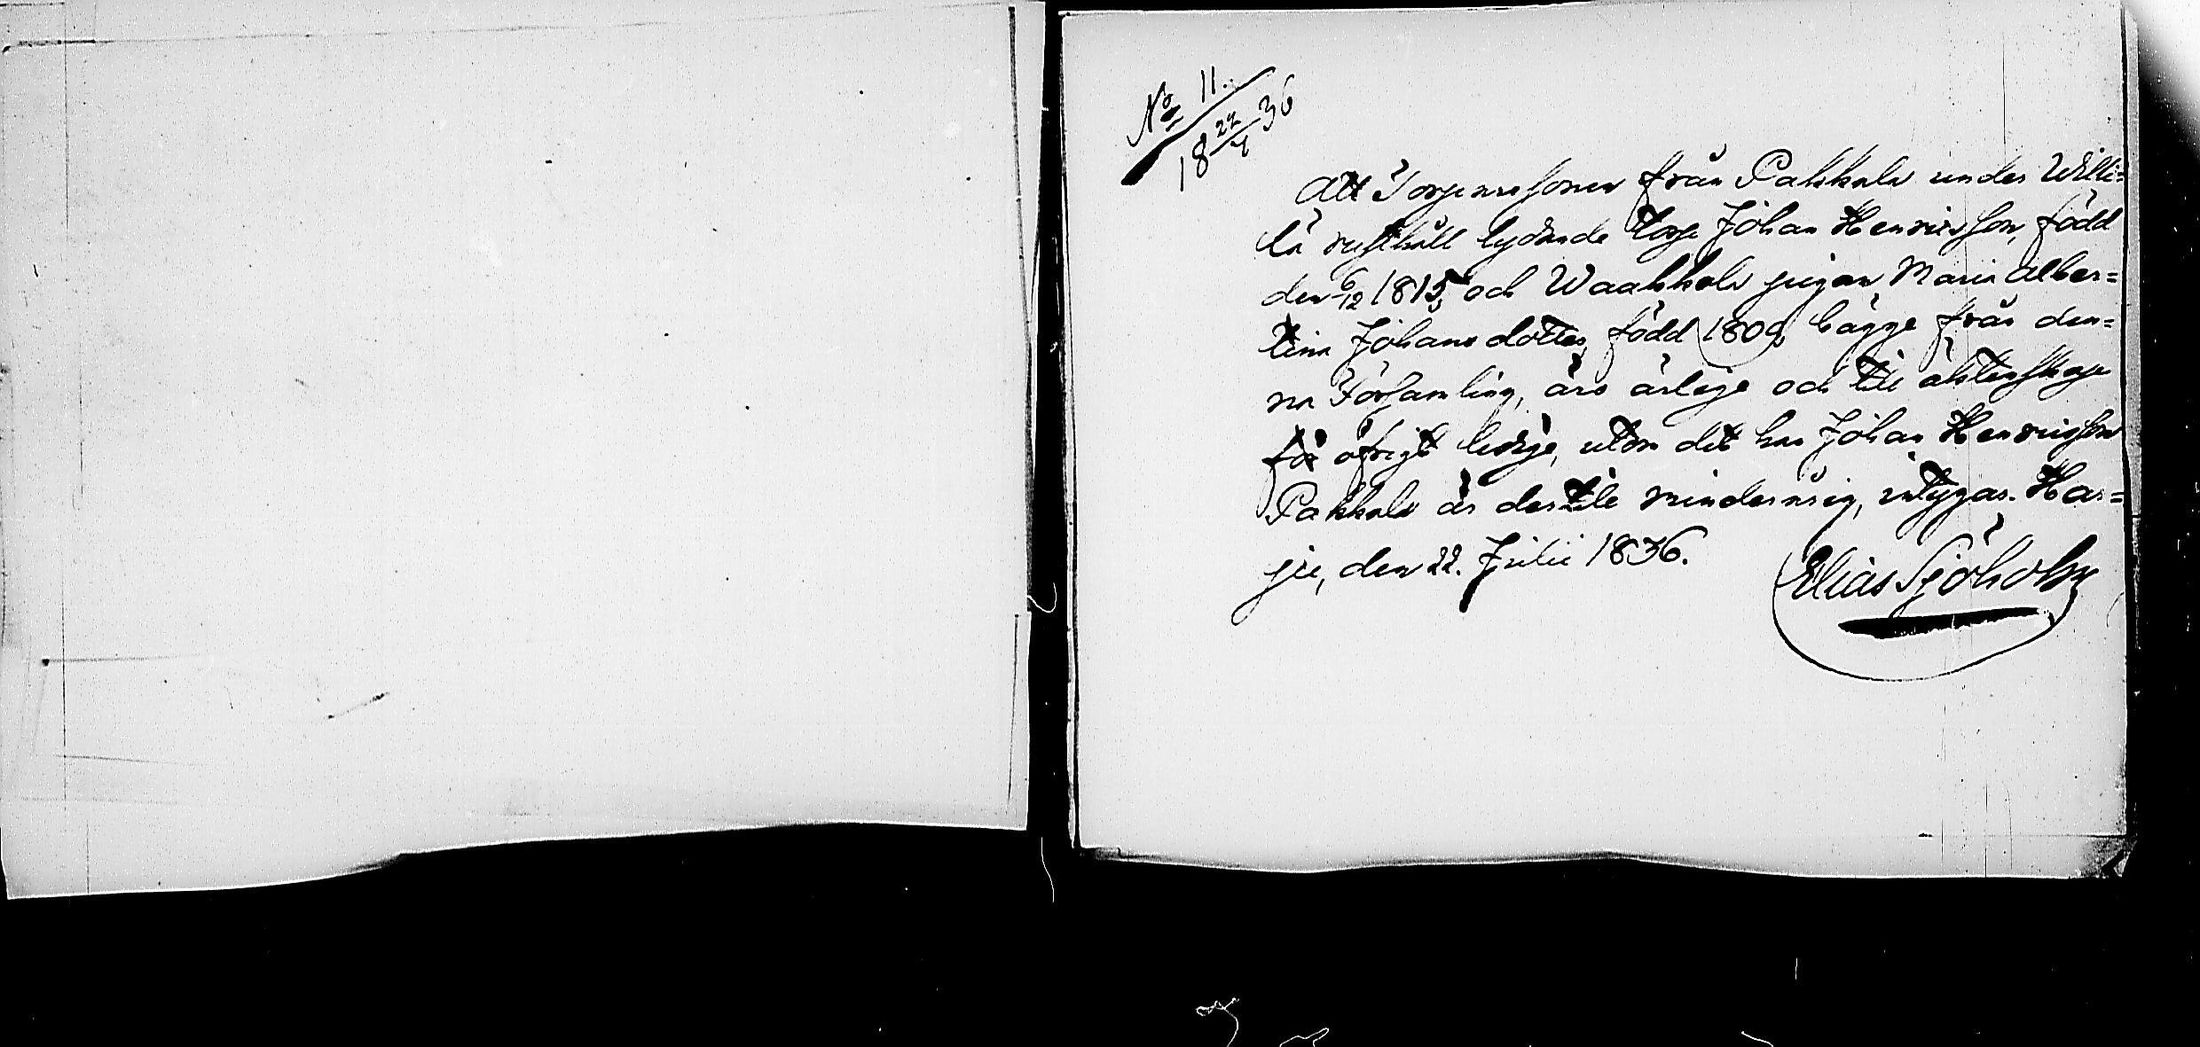 No 11.
18 22/7 36
Att Torparesonen från Pakkala under Willi=
lä rusthåll lydande torp Johan Henricsson, född
den 6/12 1815, och Waakkola pigan Maria Alber=
tina Johansdotter, född 1809, bägge från den=
na Församling, äro ärlige och till äktenskap
för öfrigt ledige, utom det han Johan Henricsson
Pakkala är dertile minderårig, intygar. Har=
ju, den 22. Julii 1836.
Elias Sjöholm